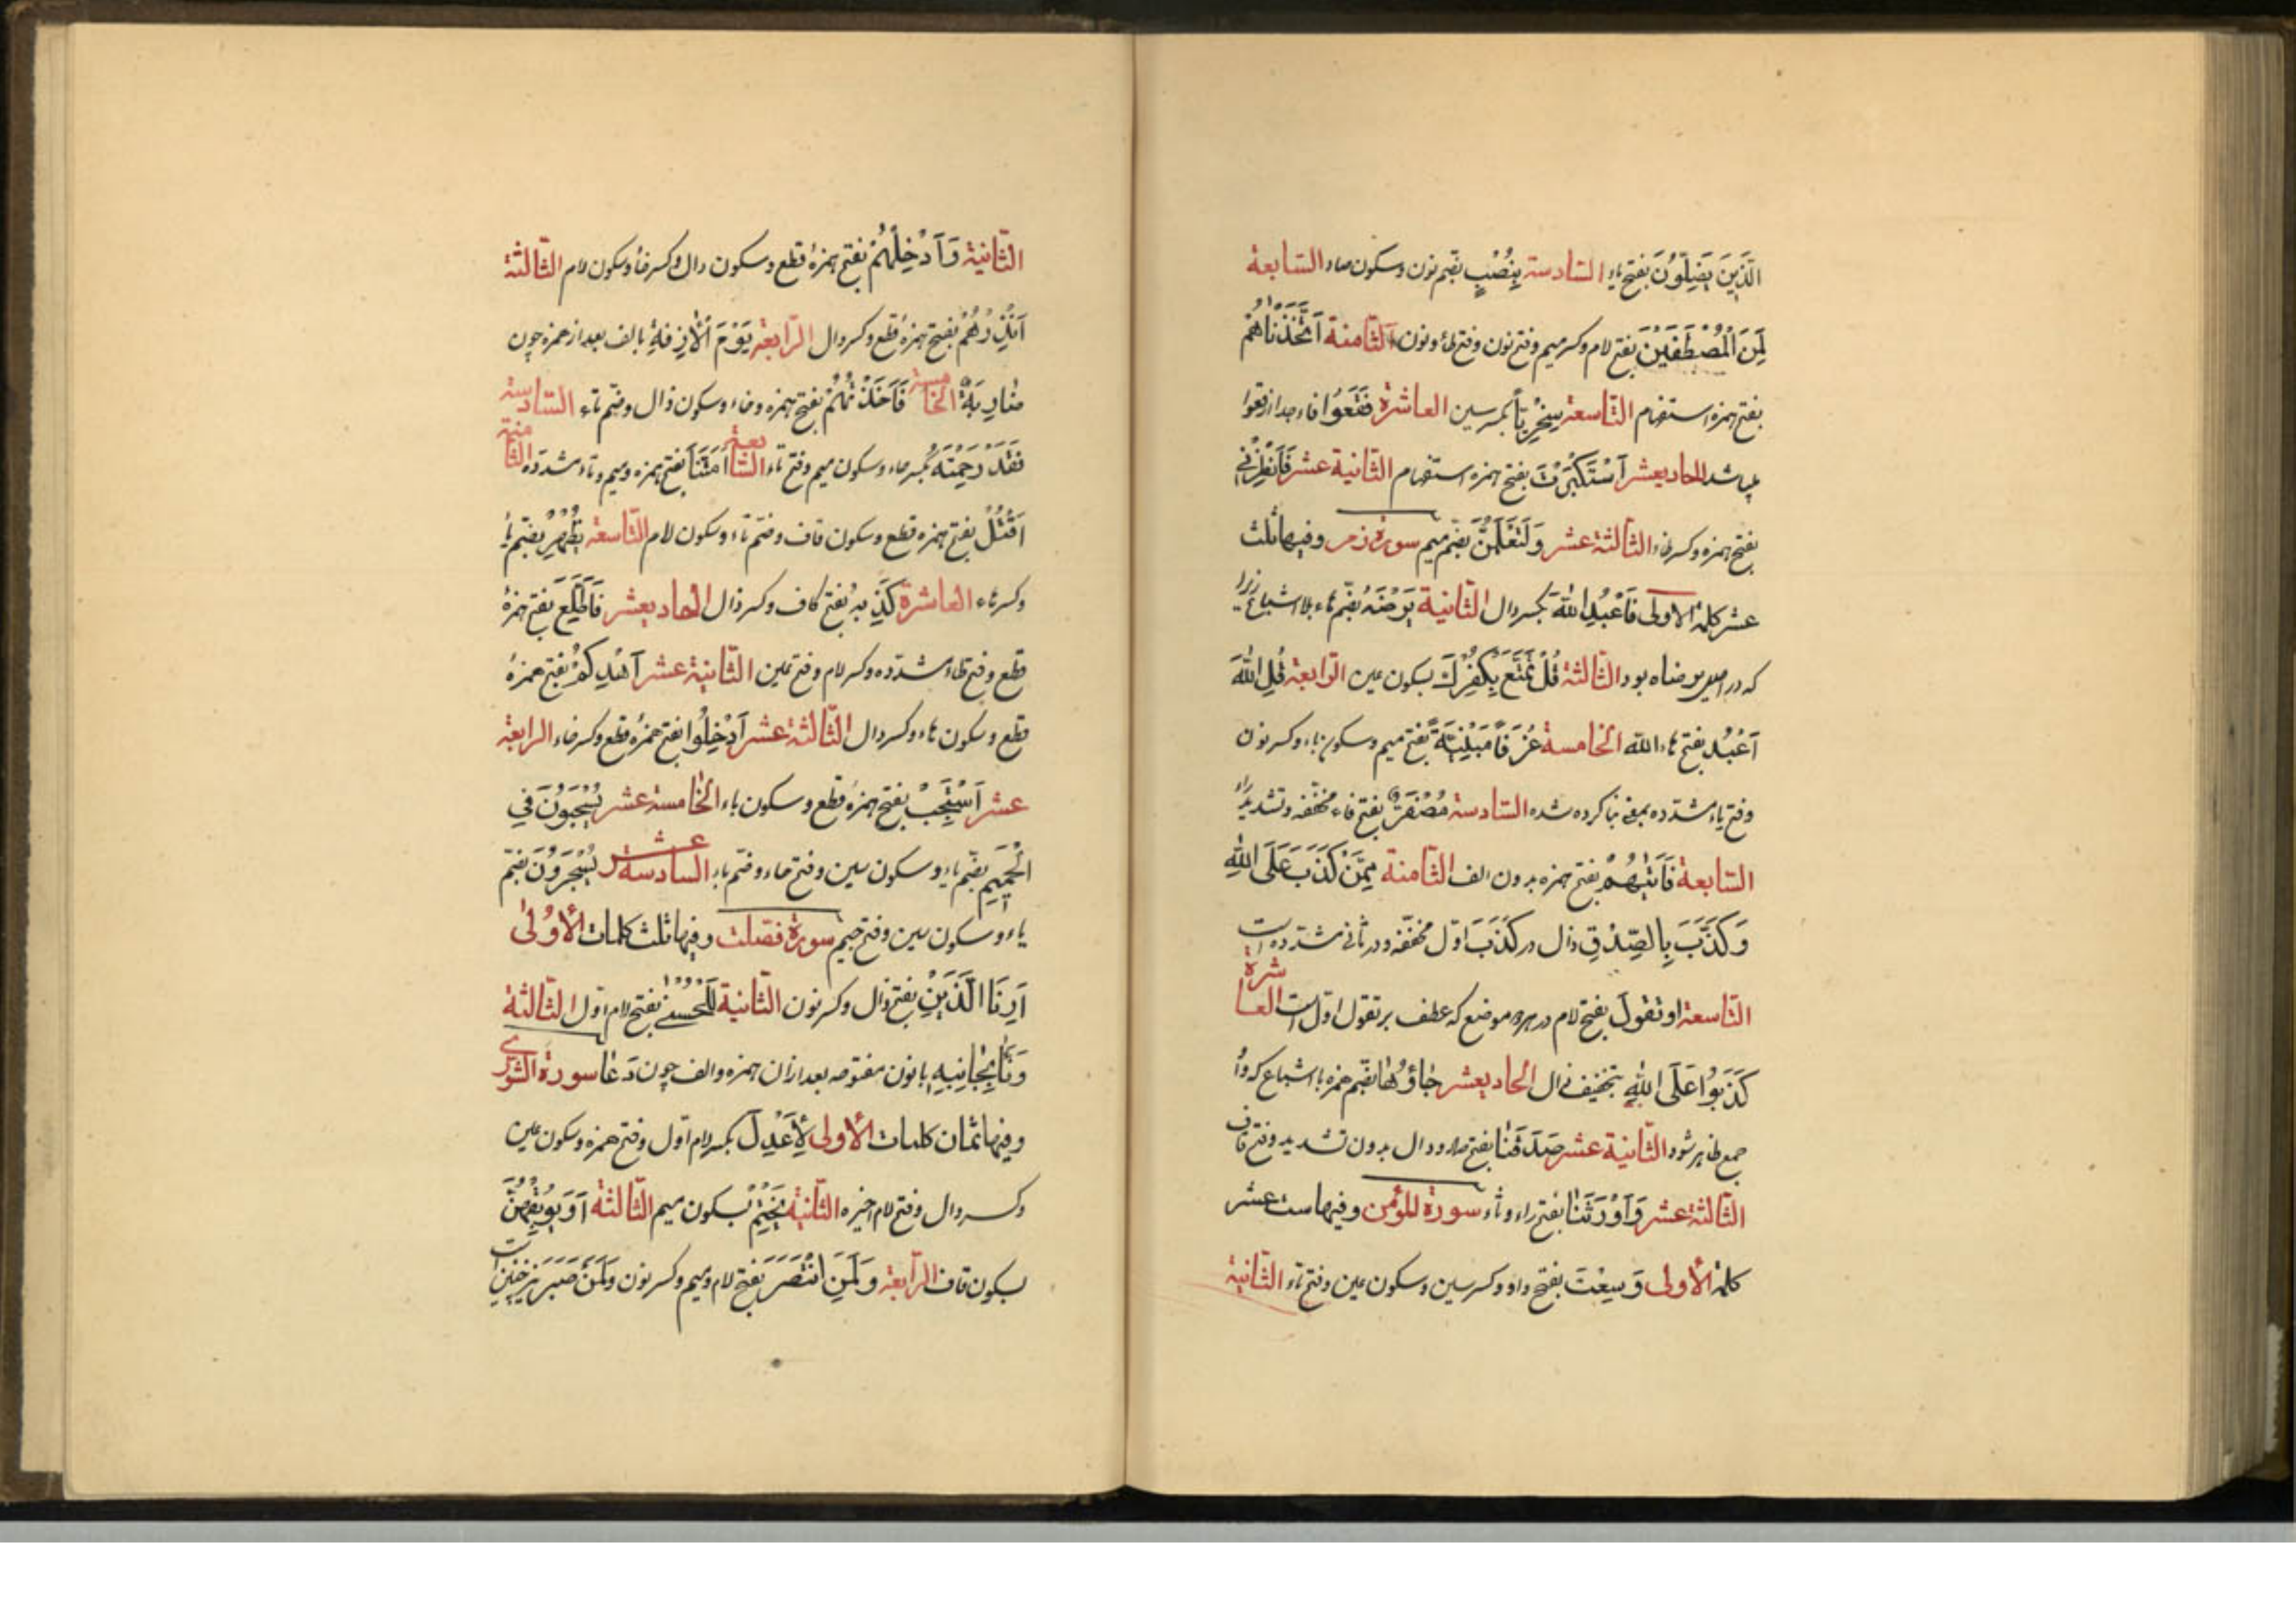 الَّذِينَ يَضِلُّونَ بفتح یاء السّادسة بِنُصْبٍ بضم نون و سکون صاد السّابعة
لَمِنَ الْمُصْطَفَيْنَ بفتح لام و کسر میم و فتح نون و فتح طاء و نون الثّامنة اَتَّخَذْنَاهُمْ
بفتح همزه استفهام التّاسعة سِخْرِيّاً بکسر سین العاشرة فَقَعُوا فاء جدا از قعوا
باشد الحادیعشر اَسْتَكْبَرْتَ بفتح همزه استفهام الثّانیة عشر فَاَنْظِرْنِي
بفتح همزه و کسر ظاء الثّالثة عشر وَلَتَعْلَمُنَّ بضم میم سورة زمر و فیها ثلث
عشر کلمة الاولی فَاَعْبُدِ اللهَ بکسر دال الثّانیة يَرْضَهُ بضم هاء بلا اشباع زیرا
که در اصل یرضاه بود الثّالثة قُلْ تَمَتَّعْ بِكُفْرِكَ بسکون عین الرّابعة قُلِ اللهَ
اَعْبُدُ بفتح هاء الله الخامسة غُرَفٌ مَبْنِيَّةٌ بفتح میم و سکون باء و کسر نون
و فتح یاء مشدّده بمعنی بنا کرده شده السّادسة مُصْفَرّاً بفتح فاء مخفّفه و تشدید راء
السّابعة فَاَتٰيهُمْ بفتح همزه بدون الف الثّامنة مِمَّنْ كَذَبَ عَلَى اللهِ
وَكَذَّبَ بِالصِّدْقِ ذال در کَذَبَ اوّل مخفّفه و در ثانی مشدّده است
التّاسعة او تَقُولَ بفتح لام در هر دو موضع که عطف بر تقول اوّل است العاشرة
كَذَبُوا عَلَى اللهِ بتخفیف ذال الحادیعشر جَاؤُهَا بضم همزه با اشباع که واو
جمع ظاهر شود الثّانیة عشر صَدَقَنَا بفتح صاد و دال بدون تشدید و فتح قاف
الثّالثة عشر وَاَوْرَثَنَا بفتح راء و ثاء سورة المؤمن و فیها ست عشر
کلمة الأولی وَسِعْتَ بفتح واو و کسر سین و سکون عین و فتح تاء الثّانیة
الثّانیة وَاَدْخِلْهُمْ بفتح همزهٔ قطع و سکون دال و کسر خاء و سکون لام الثّالثة
اَنْذِرْهُمْ بفتح همزهٔ قطع و کسر ذال الرّابعة يَوْمَ الْاٰزِفَةِ بالف بعد از همزه چون
ضاربة الخامسة فَاَخَذْتُهُمْ بفتح همزه و خاء و سکون ذال و ضم تاء السّادسة
فَقَدْ رَحِمْتَهُ بکسر حاء و سکون میم و فتح تاء السّابعة اَمَتَّنَا بفتح همزه و میم و تاء مشدّده الثّامنة
اَقْتُلْ بفتح همزه قطع و سکون قاف و ضم تاء و سکون لام التّاسعة يُظْهِرَ بضم یاء
و کسر هاء العاشرة كَذِبُهُ بفتح کاف و کسر ذال الحادیعشر فَاَطَّلِعَ بفتح همزهٔ
قطع و فتح طاء مشدّده و کسر لام و فتح عین الثّانیة عشر اَهْدِكُمْ بفتح همزهٔ
قطع و سکون هاء و کسر دال الثّالثة عشر اَدْخِلُوا بفتح همزهٔ قطع و کسر خاء الرابعة
عشر اَسْتَجِبْ بفتح همزهٔ قطع و سکون باء الخامسة عشر يُسْحَبُونَ فِي
الْحَمِيمِ بضم یاء و سکون سین و فتح حاء و ضم باء السادسة عشر يُسْجَرُونَ بضم
یاء و سکون سین و فتح جیم سورة فصلت و فیها ثلث کلمات الأولی
اَرِنَا الَّذَيْنِ بفتح ذال و کسر نون الثّانیة لَلْحُسْنٰى بفتح لام اوّل الثّالثة
وَنَاٰ بِجَانِبِهِ با نون مفتوحه بعد از آن همزه و الف چون دَعَا سورة الشورى
و فیها ثمان کلمات الأولی لِاَعْدِلَ بکسر لام اوّل و فتح همزه و سکون عین
و کسر دال و فتح لام اخیره الثّانیة يَخْتِمْ بسکون میم الثّالثة اَوْ يُوبِقْهُنَّ
بسکون قاف الرّابعة وَلَمَنِ انْتَصَرَ بفتح لام و میم و کسر نون وَلَمَنْ صَبَرَ نیز چنین است